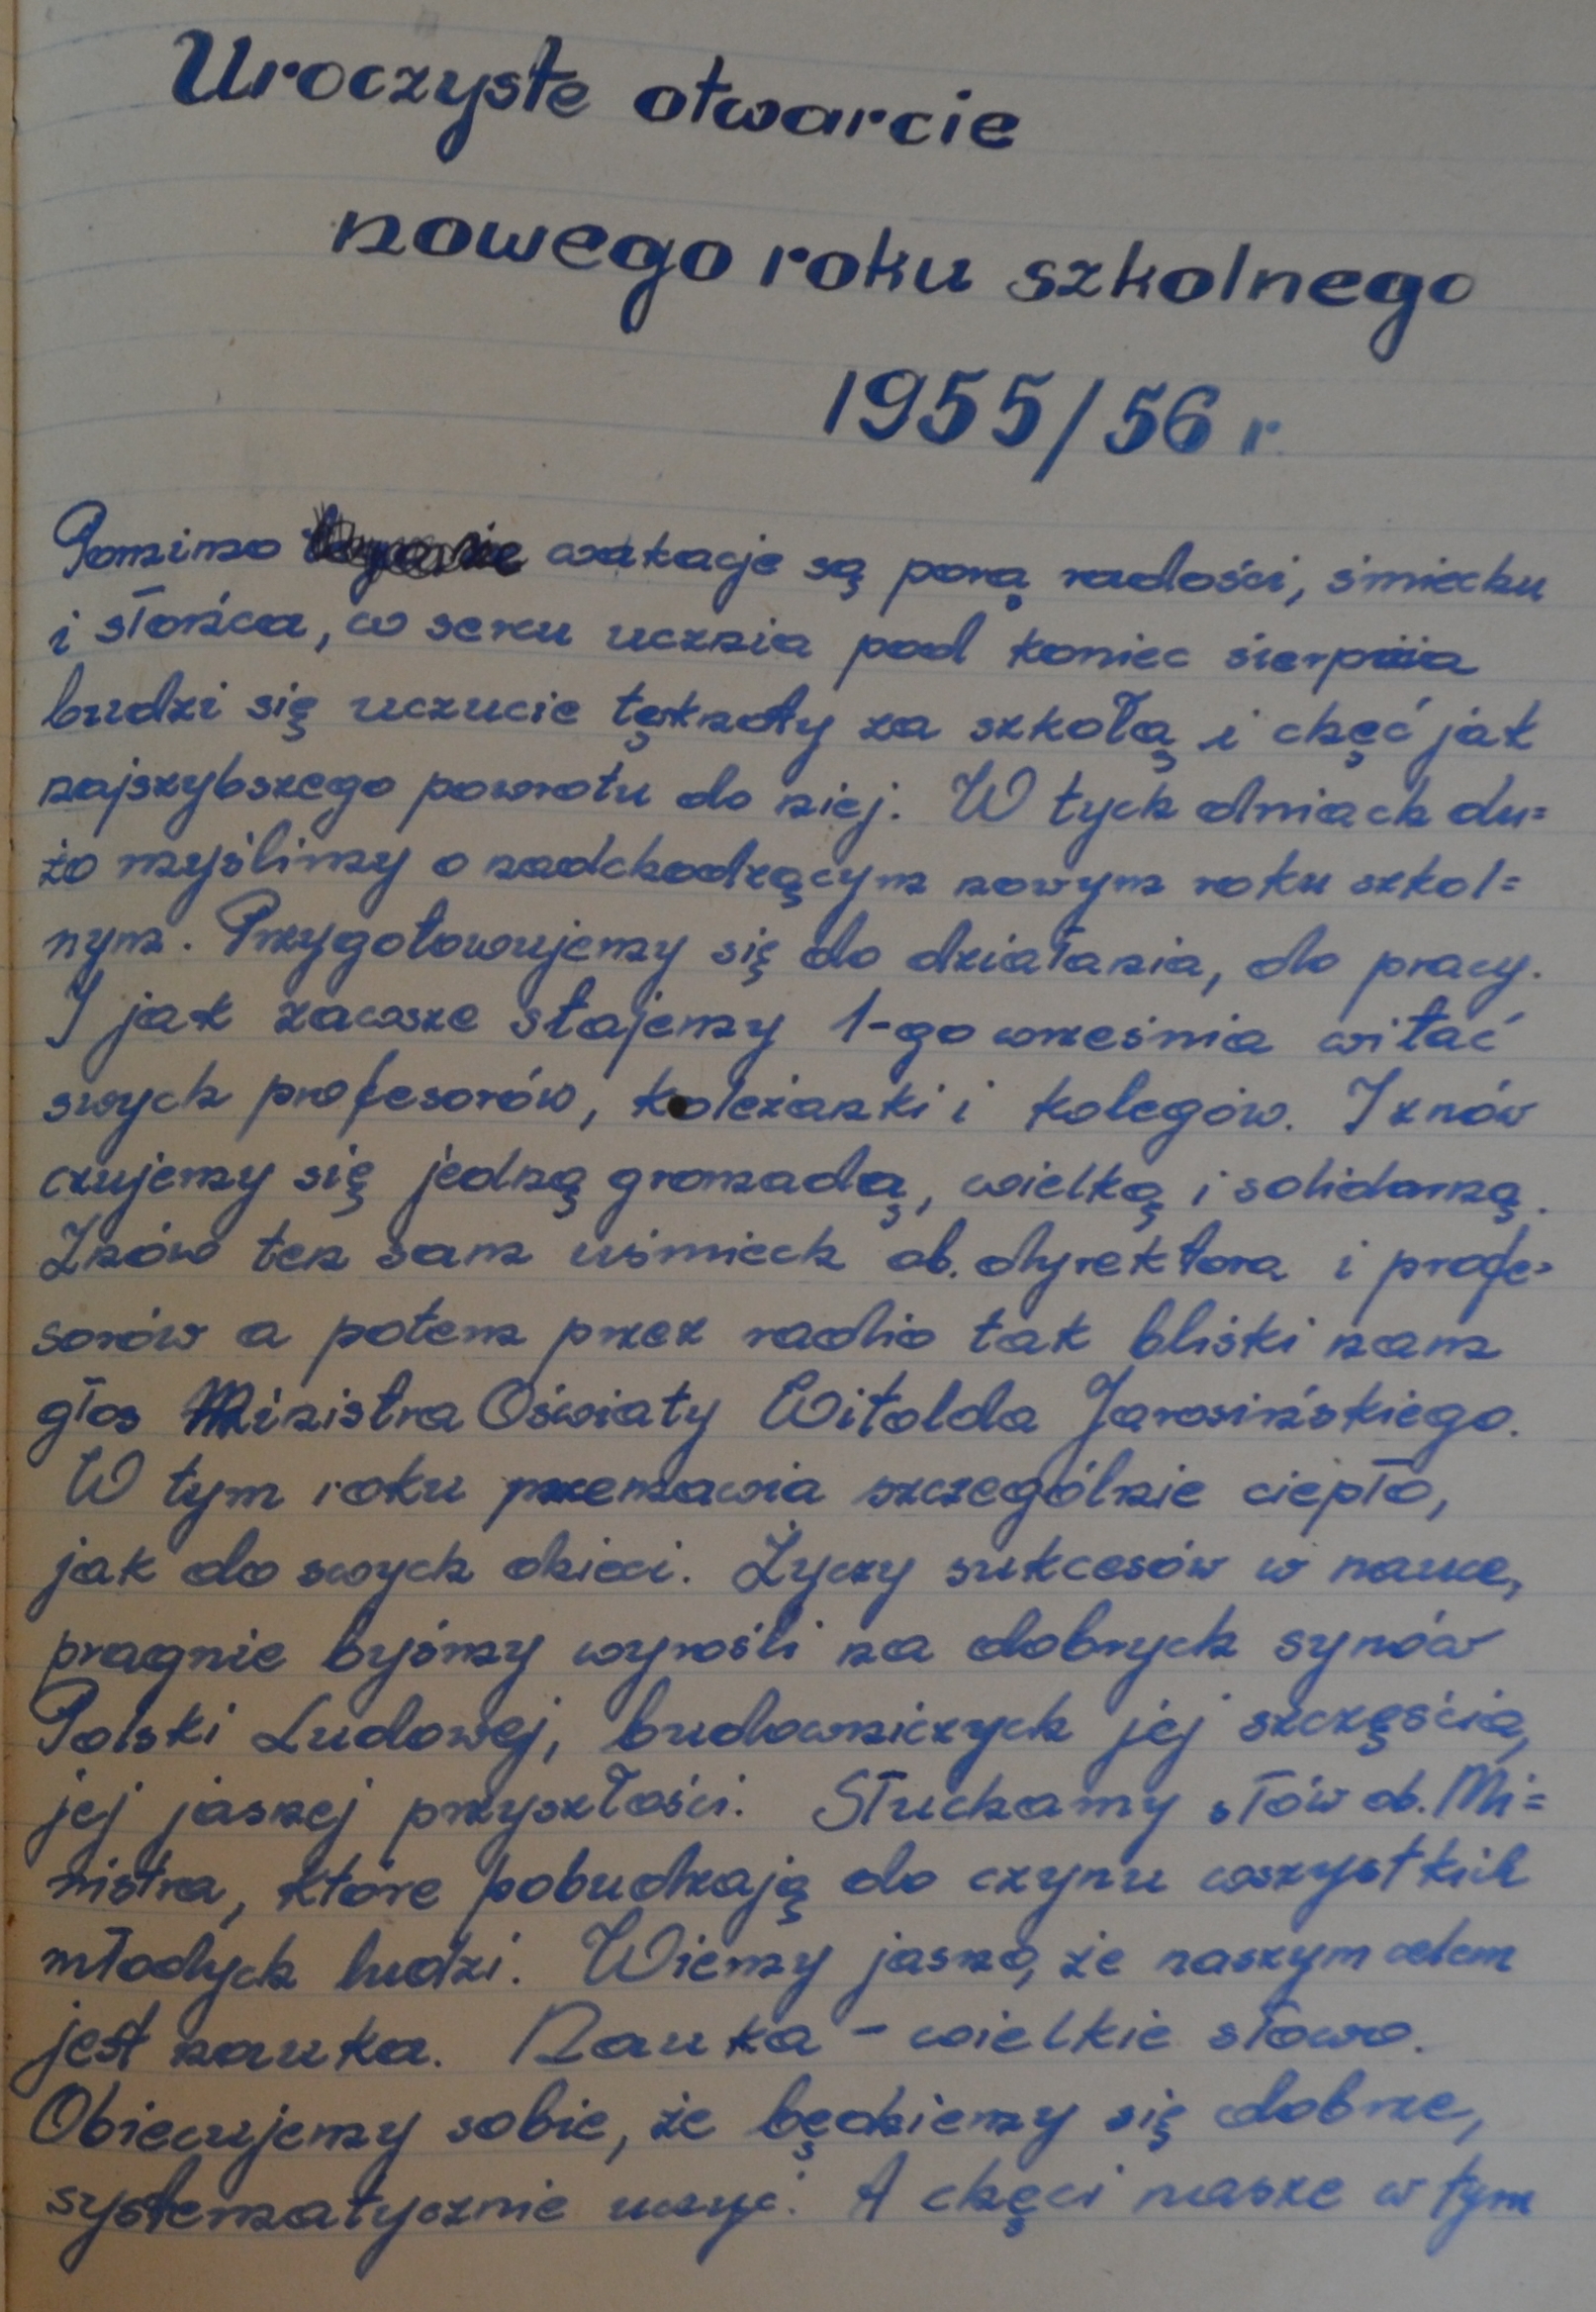 Uroczyste otwarcie
nowego roku szkolnego
1955/56 r.
Pomimo wakacje są porą radości, śmiechu
i słońca, w sercu ucznia pod koniec sierpnia
budzi się uczucie tęsknoty za szkołą i chęć jak
najszybszego powrotu do niej. W tych dniach du=
żo myślimy o nadchodzącym nowym roku szkol=
nym. Przygotowujemy się do działania, do pracy.
I jak zawsze stajemy 1-go września witać
swych profesorów, koleżanki i kolegów. I znów
czujemy się jedną gromadą, wielką i solidarną.
Znów ten sam uśmiech ob. dyrektora i profe=
sorów a potem przez radio tak bliski nam
głos Ministra Oświaty Witolda Jarosińskiego.
W tym roku przemawia szczególnie ciepło,
jak do swych dzieci. Życzy sukcesów w nauce,
pragnie byśmy wyrośli na dobrych synów
Polski Ludowej, budowniczych jej szczęścia,
jej jasnej przyszłości. Słuchamy słów ob. Mi=
nistra, które pobudzają do czynu wszystkich
młodych ludzi. Wiemy jasno, że naszym celem
jest nauka. Nauka - wielkie słowo.
Obiecujemy sobie, że będziemy się dobrze,
systematycznie uczyć. A chęci nasze w tym